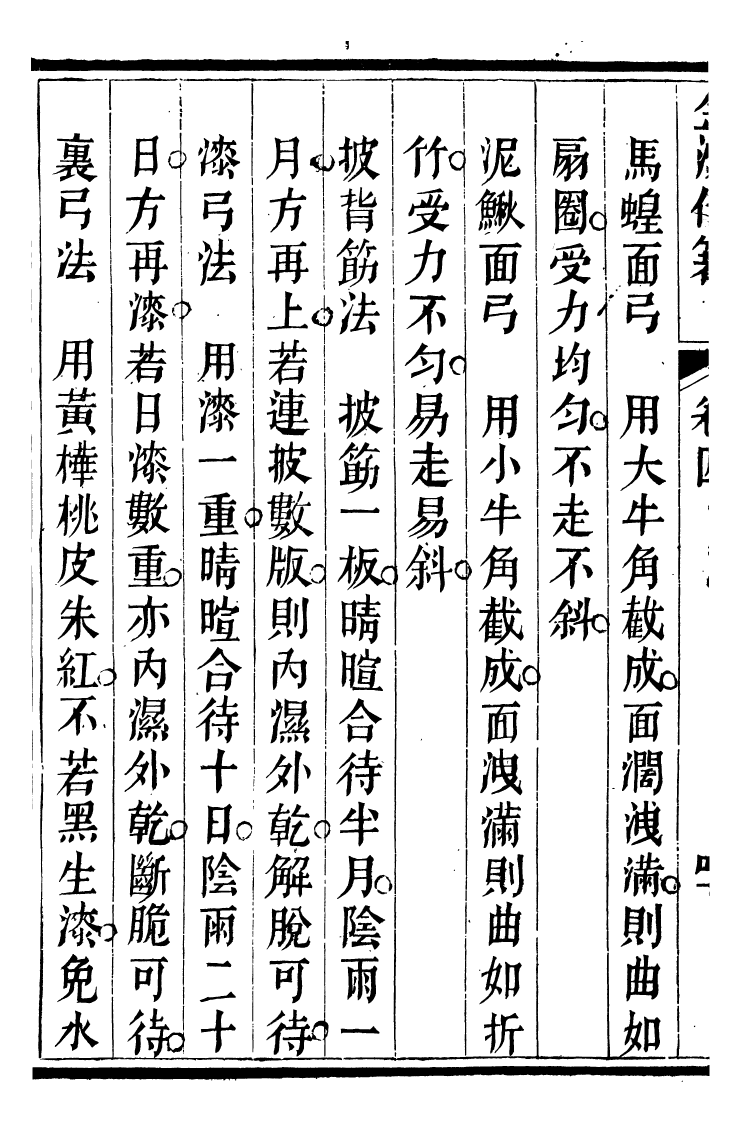 馬蝗面弓　用大牛角截成。面濶洩滿。則曲如
扇圈。受力均勻。不走不斜。
泥鰍面弓　用小牛角截成。面洩滿則曲如折
竹。受力不勻。易走易斜。
披背筋法　披筋一板。晴暄合待半月。陰雨一
月。方再上。若連披數版。則內濕外乾。解脫可待。
漆弓法　用漆一重。晴暄合待十日。陰雨二十
日。方再漆。若日漆數重。亦內濕外乾。斷脆可待。
裏弓法　用黃樺桃皮朱紅。不若黑生漆。免水